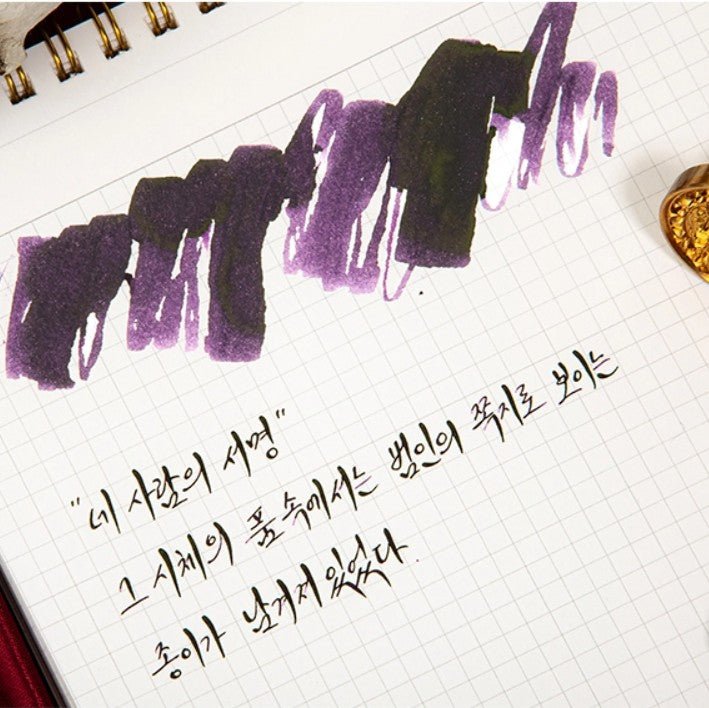 "네 사람의 서명"
그 시체의 품속에서는 범인의 쪽지로 보이는
종이가 남겨져있었다.